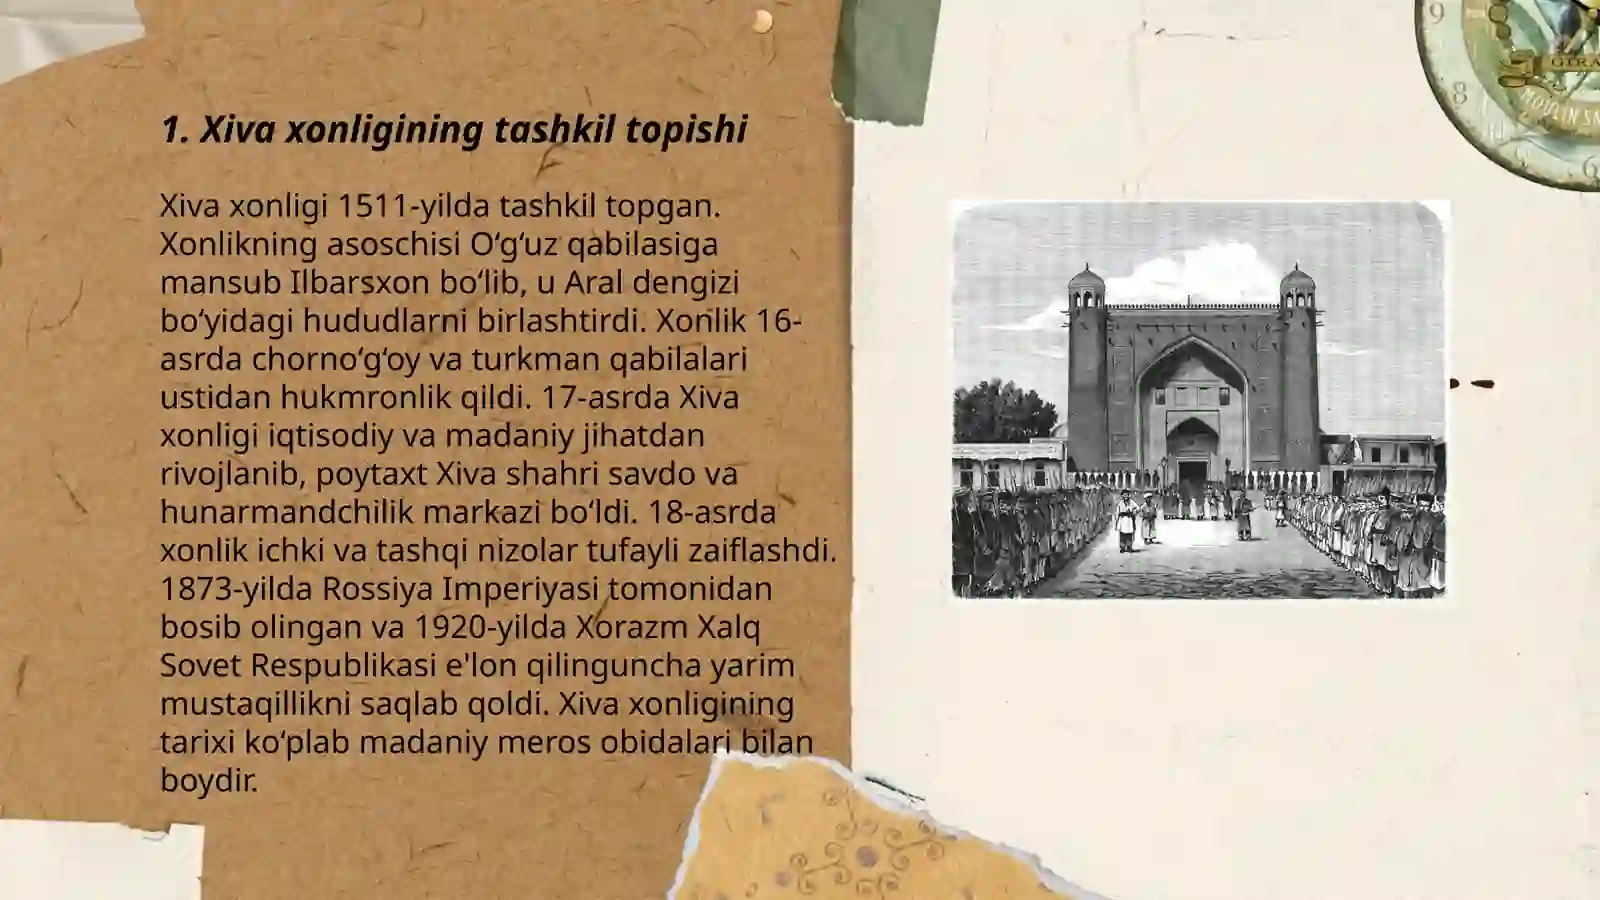 1. Xiva xonligining tashkil topishi
Xiva xonligi 1511-yilda tashkil topgan.
Xonlikning asoschisi Oʻgʻuz qabilasiga
mansub Ilbarsxon boʻlib, u Aral dengizi
boʻyidagi hududlarni birlashtirdi. Xonlik 16-
asrda chornoʻgʻoy va turkman qabilalari
ustidan hukmronlik qildi. 17-asrda Xiva
xonligi iqtisodiy va madaniy jihatdan
rivojlanib, poytaxt Xiva shahri savdo va
hunarmandchilik markazi boʻldi. 18-asrda
xonlik ichki va tashqi nizolar tufayli zaiflashdi.
1873-yilda Rossiya Imperiyasi tomonidan
bosib olingan va 1920-yilda Xorazm Xalq
Sovet Respublikasi e'lon qilinguncha yarim
mustaqillikni saqlab qoldi. Xiva xonligining
tarixi koʻplab madaniy meros obidalari bilan
boydir.
9
8
6
GIRA
MOULIN SN